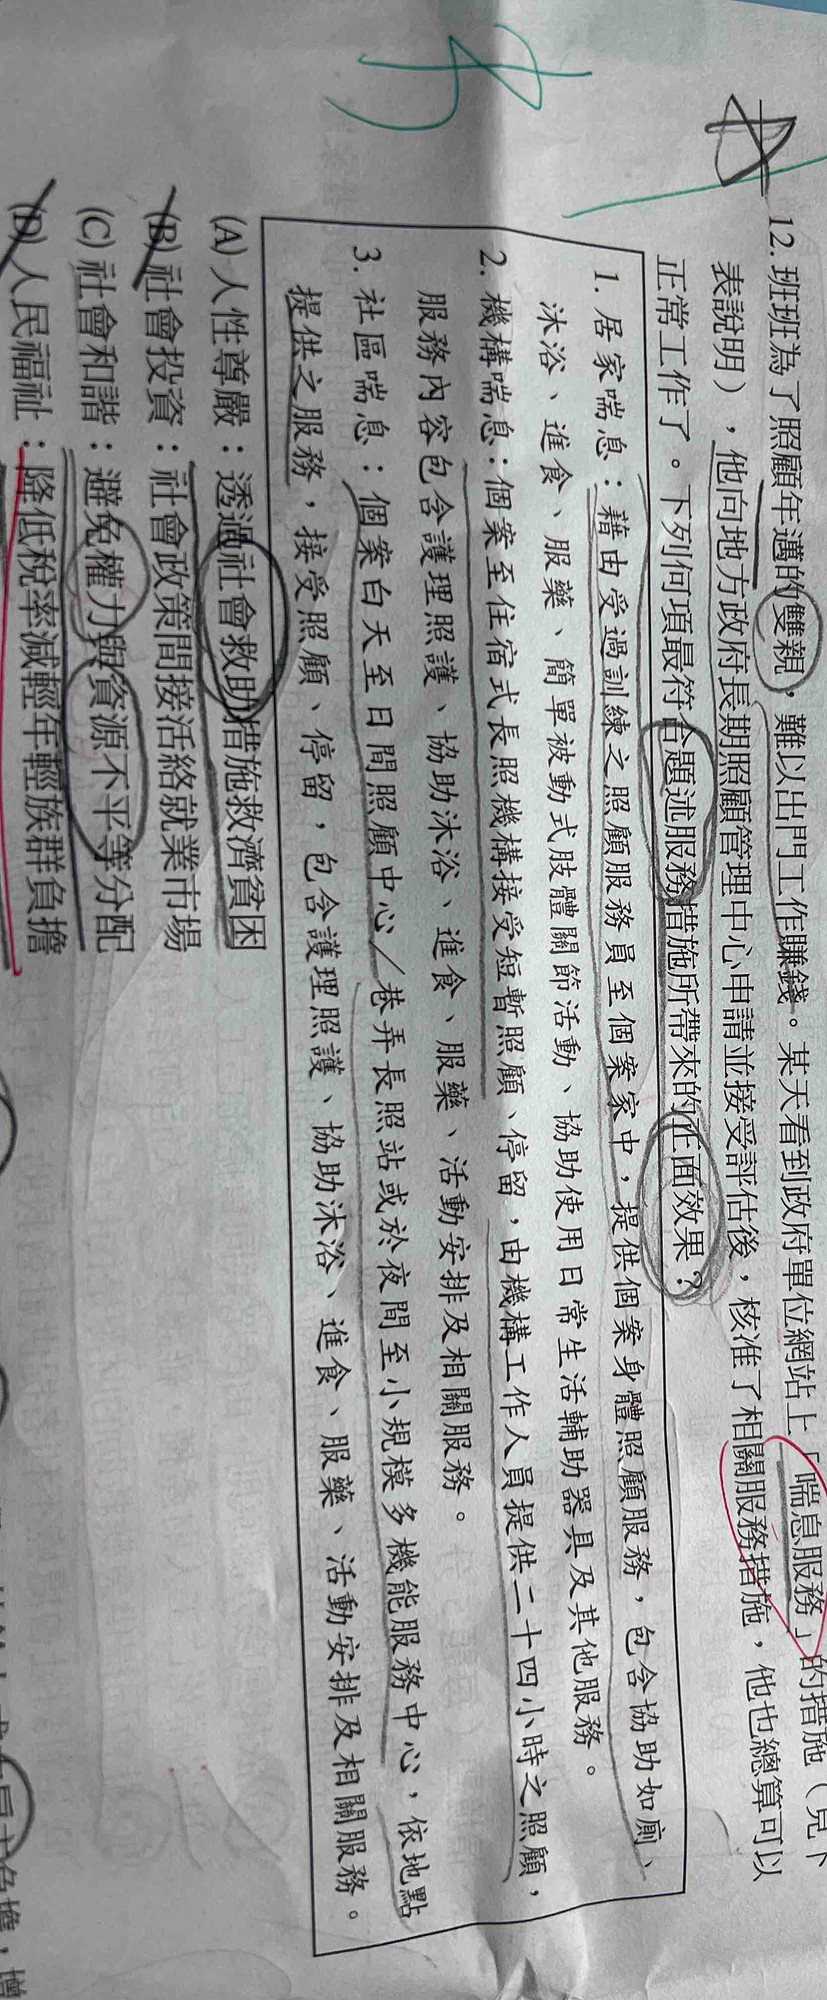 12. 班班為了照顧年邁的雙親，難以出門工作賺錢。某天看到政府單位網站上「喘息服務」的措施（見下
表說明），他向地方政府長期照顧管理中心申請並接受評估後，核准了相關服務措施，他也總算可以
正常工作了。下列何項最符合題述服務措施所帶來的正面效果？
1. 居家喘息：藉由受過訓練之照顧服務員至個案家中，提供個案身體照顧服務，包含協助如廁、
沐浴、進食、服藥、簡單被動式肢體關節活動、協助使用日常生活輔助器具及其他服務。
2. 機構喘息：個案至住宿式長照機構接受短暫照顧、停留，由機構工作人員提供二十四小時之照顧，
服務內容包含護理照護、協助沐浴、進食、服藥、活動安排及相關服務。
3. 社區喘息：個案白天至日間照顧中心／巷弄長照站或於夜間至小規模多機能服務中心，依地點
提供之服務，接受照顧、停留，包含護理照護、協助沐浴、進食、服藥、活動安排及相關服務。
(A)人性尊嚴：透過社會救助措施救濟貧困
(B)社會投資：社會政策間接活絡就業市場
(C)社會和諧：避免權力與資源不平等分配
(D)人民福祉：降低稅率減輕年輕族群負擔